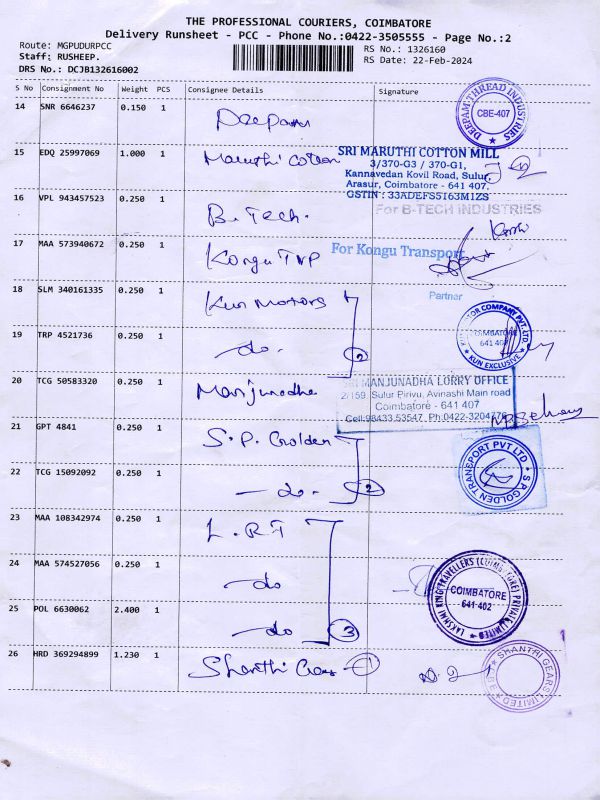 THE PROFESSIONAL COURIERS, COIMBATORE
Delivery Runsheet - PCC - Phone No.:0422-3505555 - Page No.:2
Route: MGPUDURPCC
Staff: RUSHEEP.
DRS No.: DCJB132616002
RS No.: 1326160
RS Date: 22-Feb-2024
S No Consignment No Weight PCS Consignee Details Signature
14 SNR 6646237 0.150 1 Deepam
DEEPAM THREAD INDUSTRIES
CBE-407
15 EDQ 25997069 1.000 1 Maruthi Cotton
SRI MARUTHI COTTON MILL
3/370-G3 / 370-G1,
Kannavedan Kovil Road, Sulur,
Arasur, Coimbatore - 641 407.
GSTIN : 33ADEFS5163M1ZS
16 VPL 943457523 0.250 1 B. Tech.
For B-TECH INDUSTRIES
17 MAA 573940672 0.250 1 Kongu TVP
For Kongu Transport
Partner
18 SLM 340161335 0.250 1 Kun Motors
19 TRP 4521736 0.250 1 - do. 2
MOTOR COMPANY PVT. LTD.
COIMBATORE
641 407
KUN EXCLUSIVE
20 TCG 50583320 0.250 1 Manjunadha
SRI MANJUNADHA LORRY OFFICE
2/159, Sulur Pirivu, Avinashi Main road
Coimbatore - 641 407
Cell:98433 53547, Ph:0422-3204776
21 GPT 4841 0.250 1 S.P. Golden
S P GOLDEN TRANSPORT PVT LTD
22 TCG 15092092 0.250 1 - do - 2
23 MAA 108342974 0.250 1 L.R.T
24 MAA 574527056 0.250 1 do
LAKSHMI KING TRAVELLERS (COIMBATORE) PRIVATE LIMITED
COIMBATORE
641-402
25 POL 6630062 2.400 1 do 3
26 HRD 369294899 1.230 1 Shanthi Gears 1
SHANTHI GEARS LIMITED